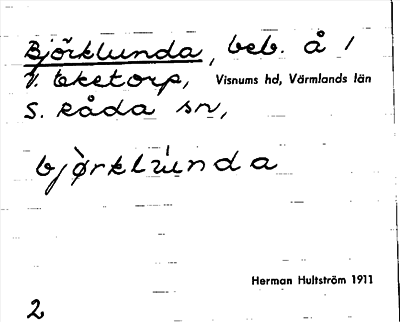 Björklunda, beb. å 1
V. Eketorp, Visnums hd, Värmlands län
S. Råda sn,
bjö̀rklúnda
Herman Hultström 1911
2